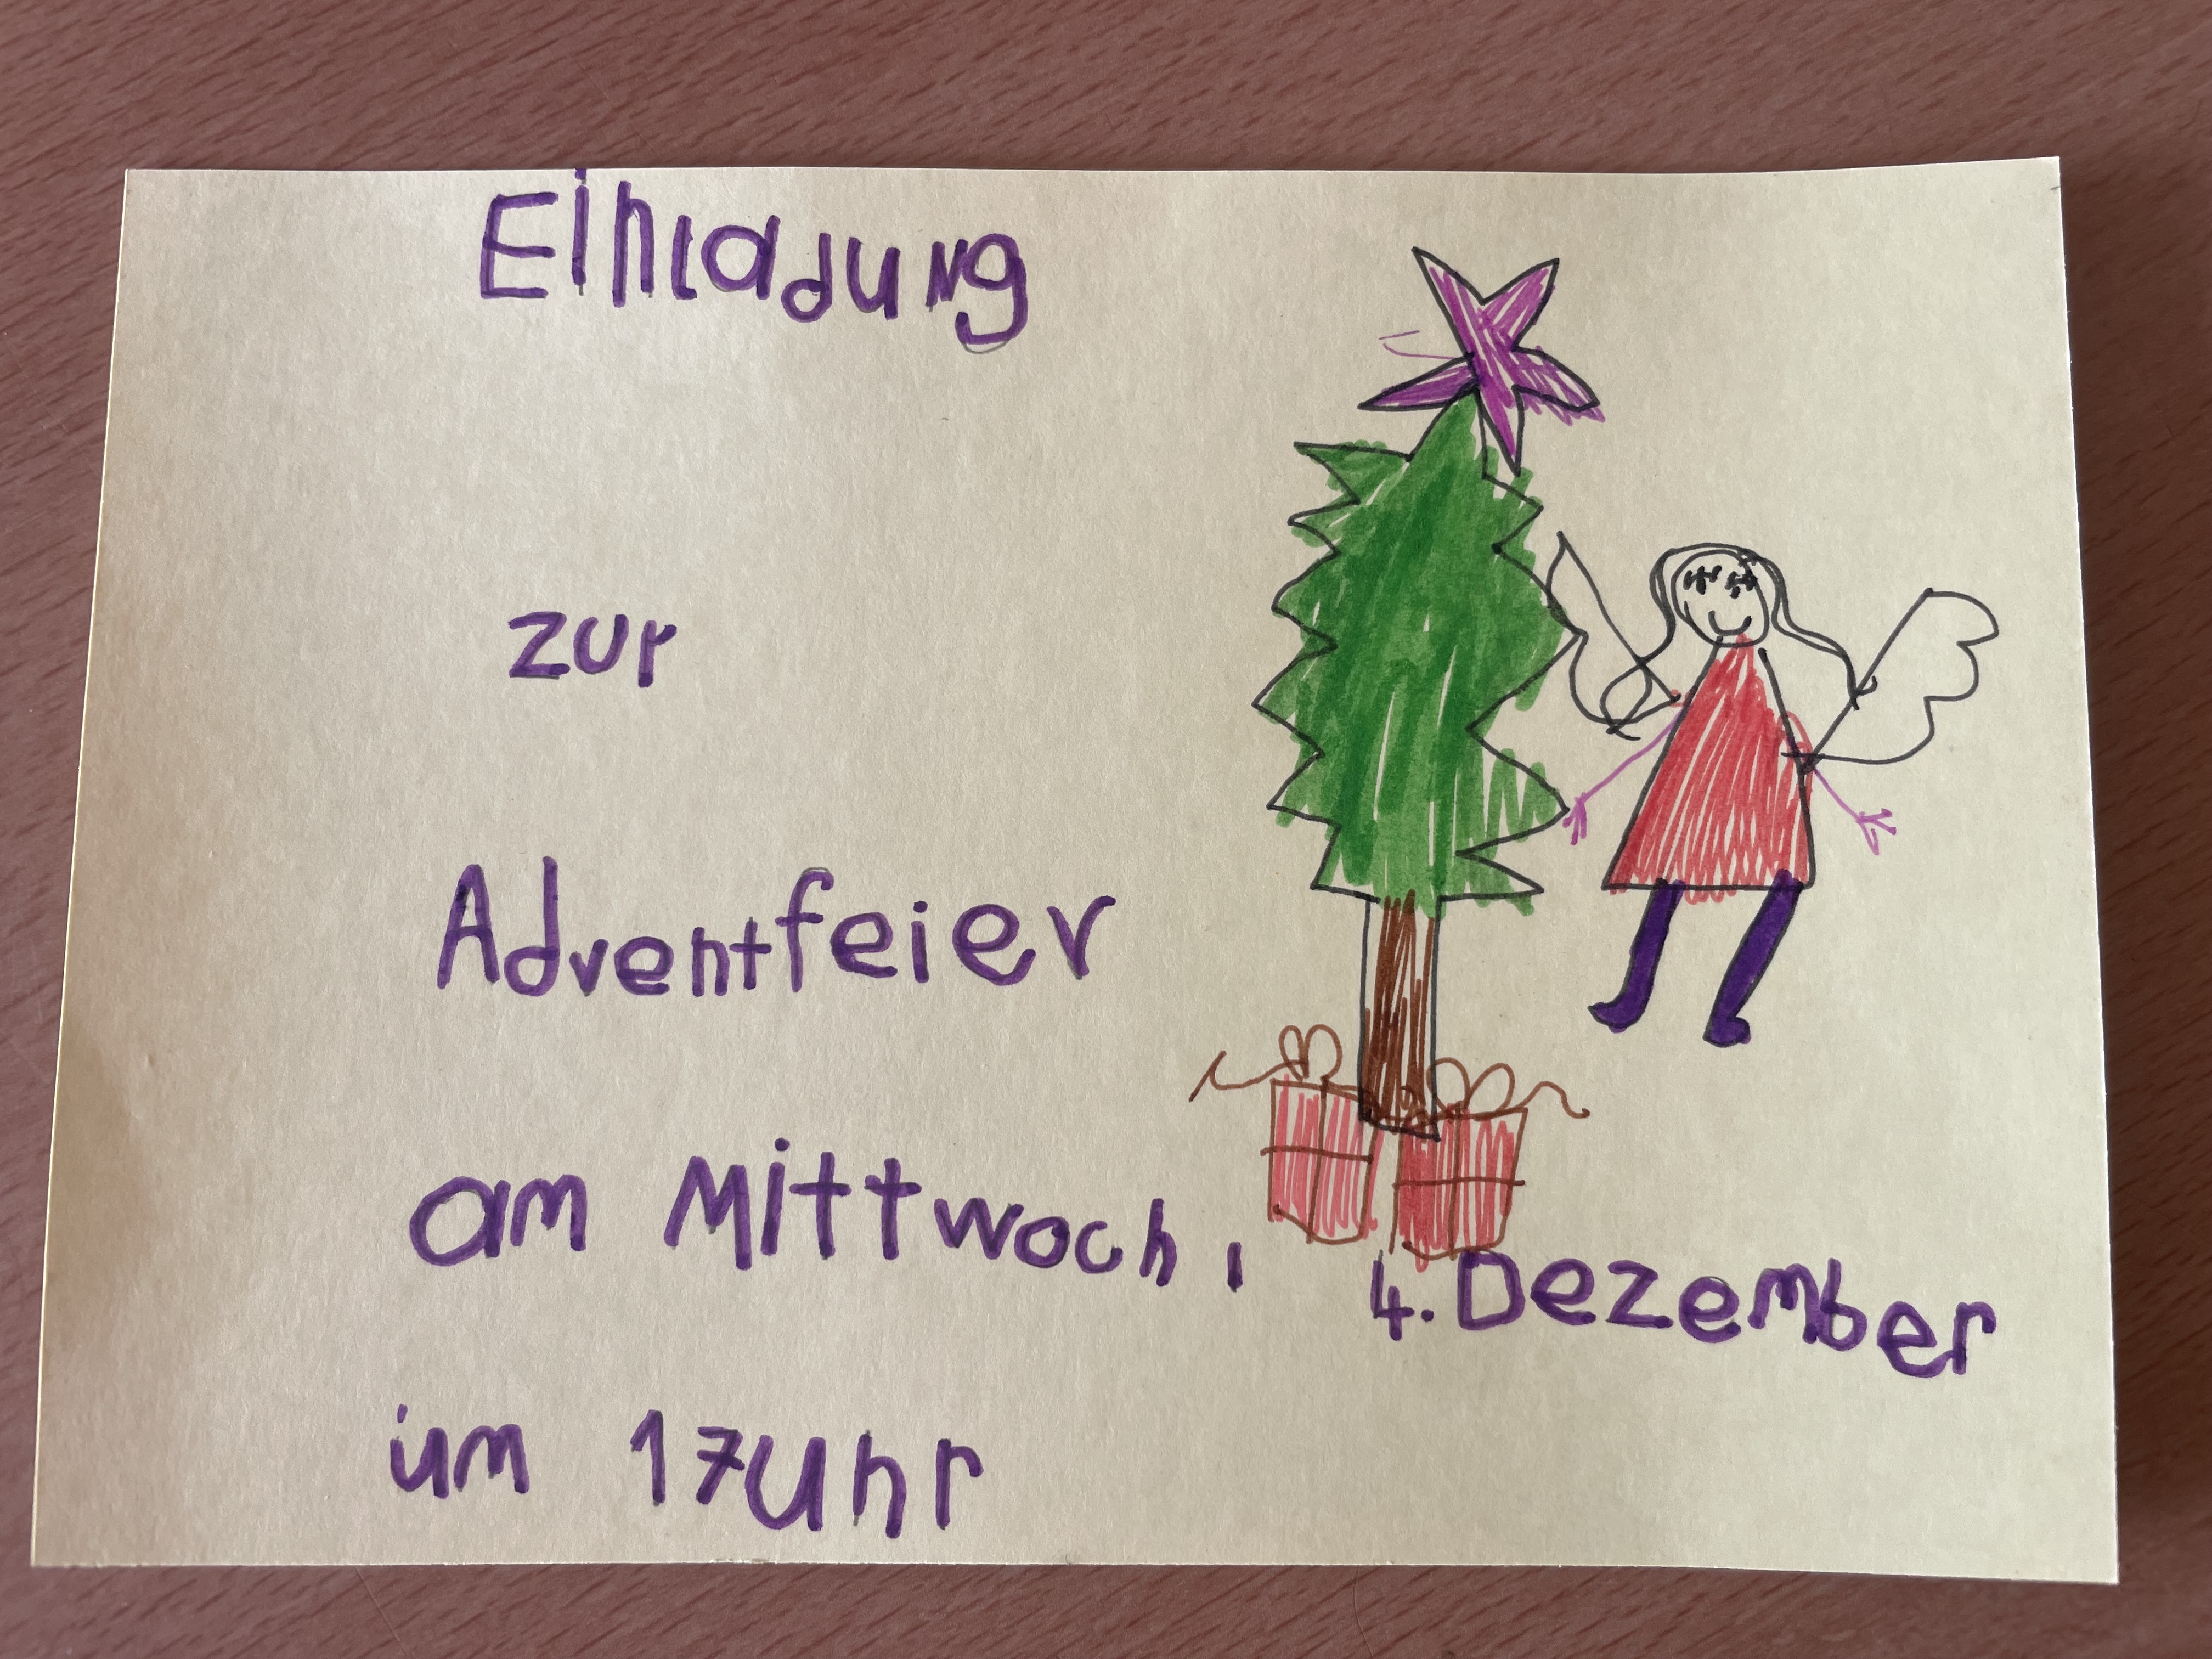 Einladung
zur
Adventfeier
am Mittwoch, 4. Dezember
um 17 Uhr